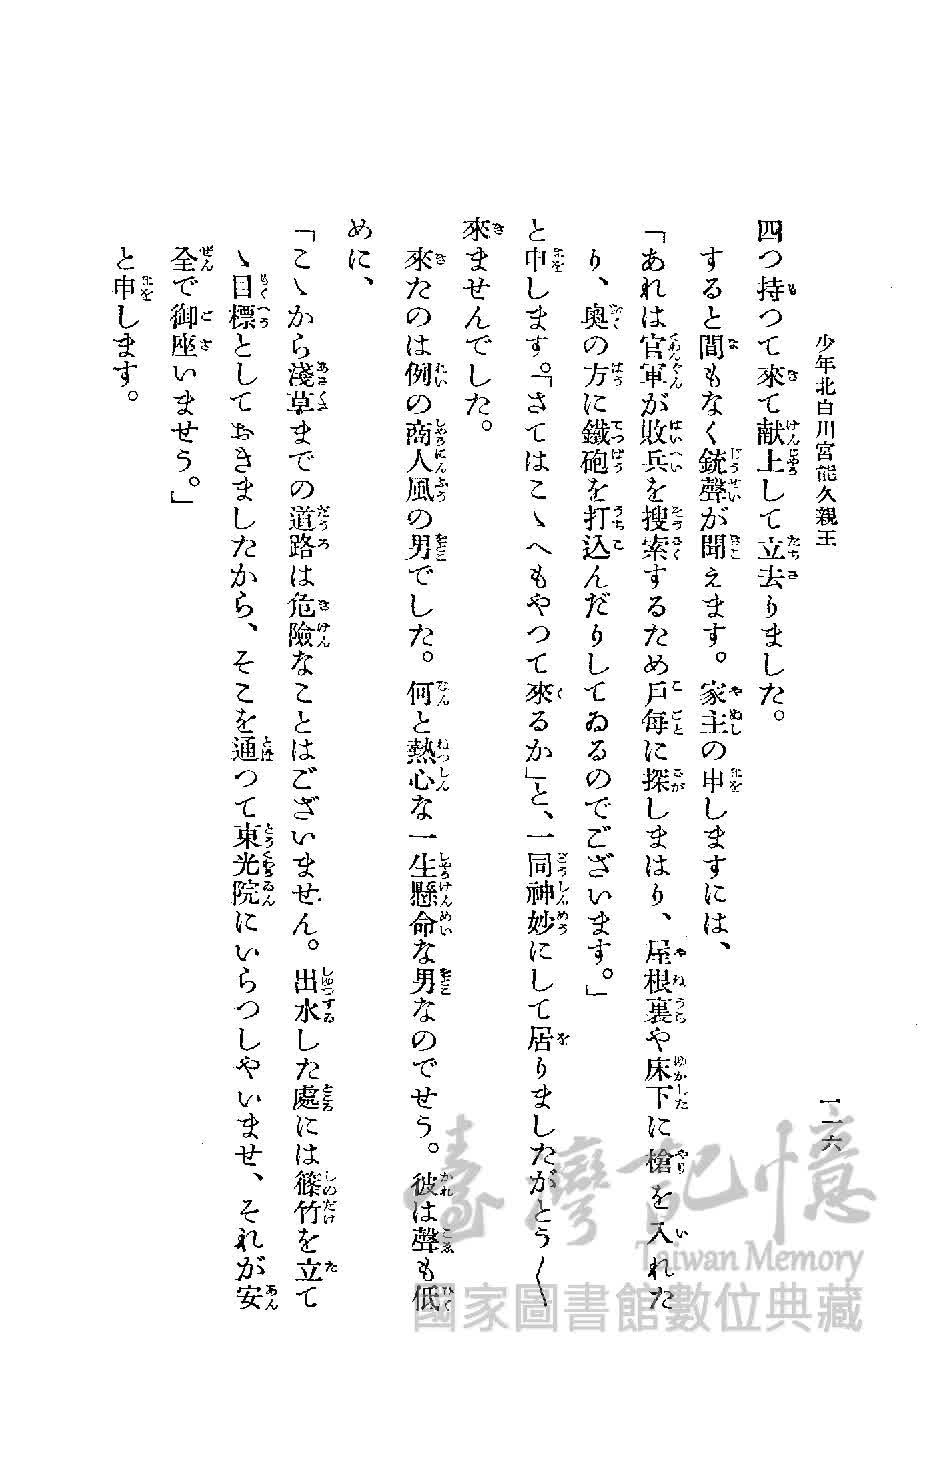 少年北白川宮能久親王
一一六
四つ持つて來て献上して立去りました。
すると間もなく銃聲が聞えます。家主の申しますには、
「あれは官軍が敗兵を搜索するため戸毎に探しまはり、屋根裏や床下に槍を入れた
り、奧の方に鐵砲を打込んだりしてゐるのでございます。」
と申します。「さてはこゝへもやつて來るか」と、一同神妙にして居りましたがとう〱
來ませんでした。
來たのは例の商人風の男でした。何と熱心な一生懸命な男なのでせう。彼は聲も低
めに、
「こゝから淺草までの道路は危險なことはございません。出水した處には篠竹を立て
ゝ目標としておきましたから、そこを通つて東光院にいらつしやいませ、それが安
全で御座いませう。」
と申します。
臺灣記憶
Taiwan Memory
國家圖書館數位典藏